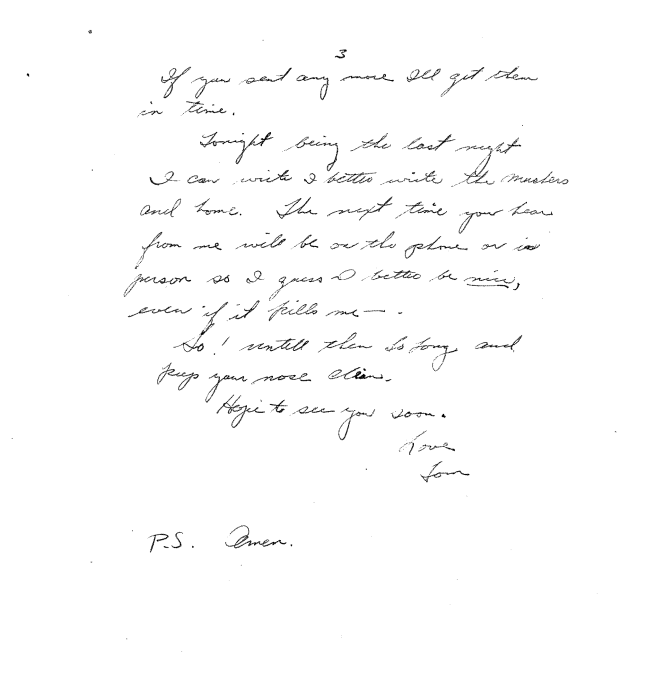 3
If you sent any more I'll get them
in time.
Tonight being the last night
I can write I better write the
and home. The next time you hear
from me will be on the phone or in
person so I guess I better be nice,
even if it kills me—.
So! untill then So long and
keep your nose clean.
Hope to see you soon.
Love
Tom
P.S. Amen.